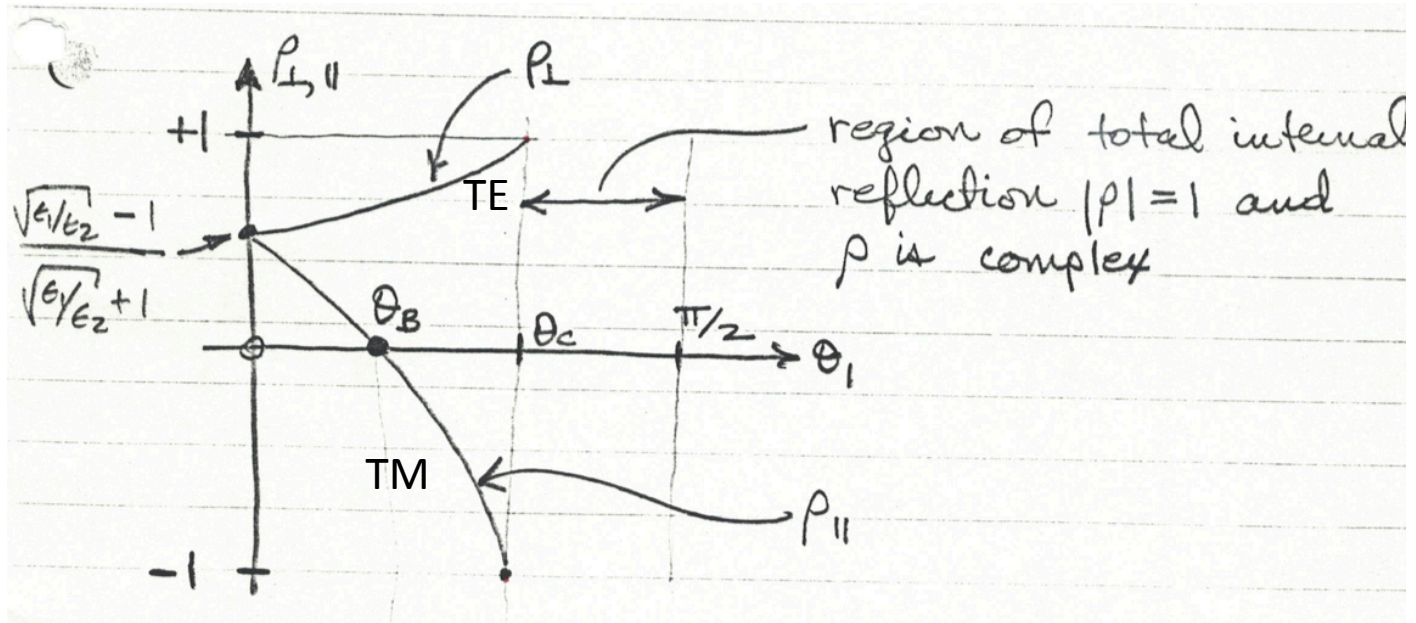 ρ⊥,∥
ρ⊥
+1
region of total internal
reflection |ρ|=1 and
ρ is complex
TE
√ϵ1/ϵ2 - 1
√ϵ1/ϵ2 + 1
θB
θc
π/2
θ1
TM
ρ∥
-1